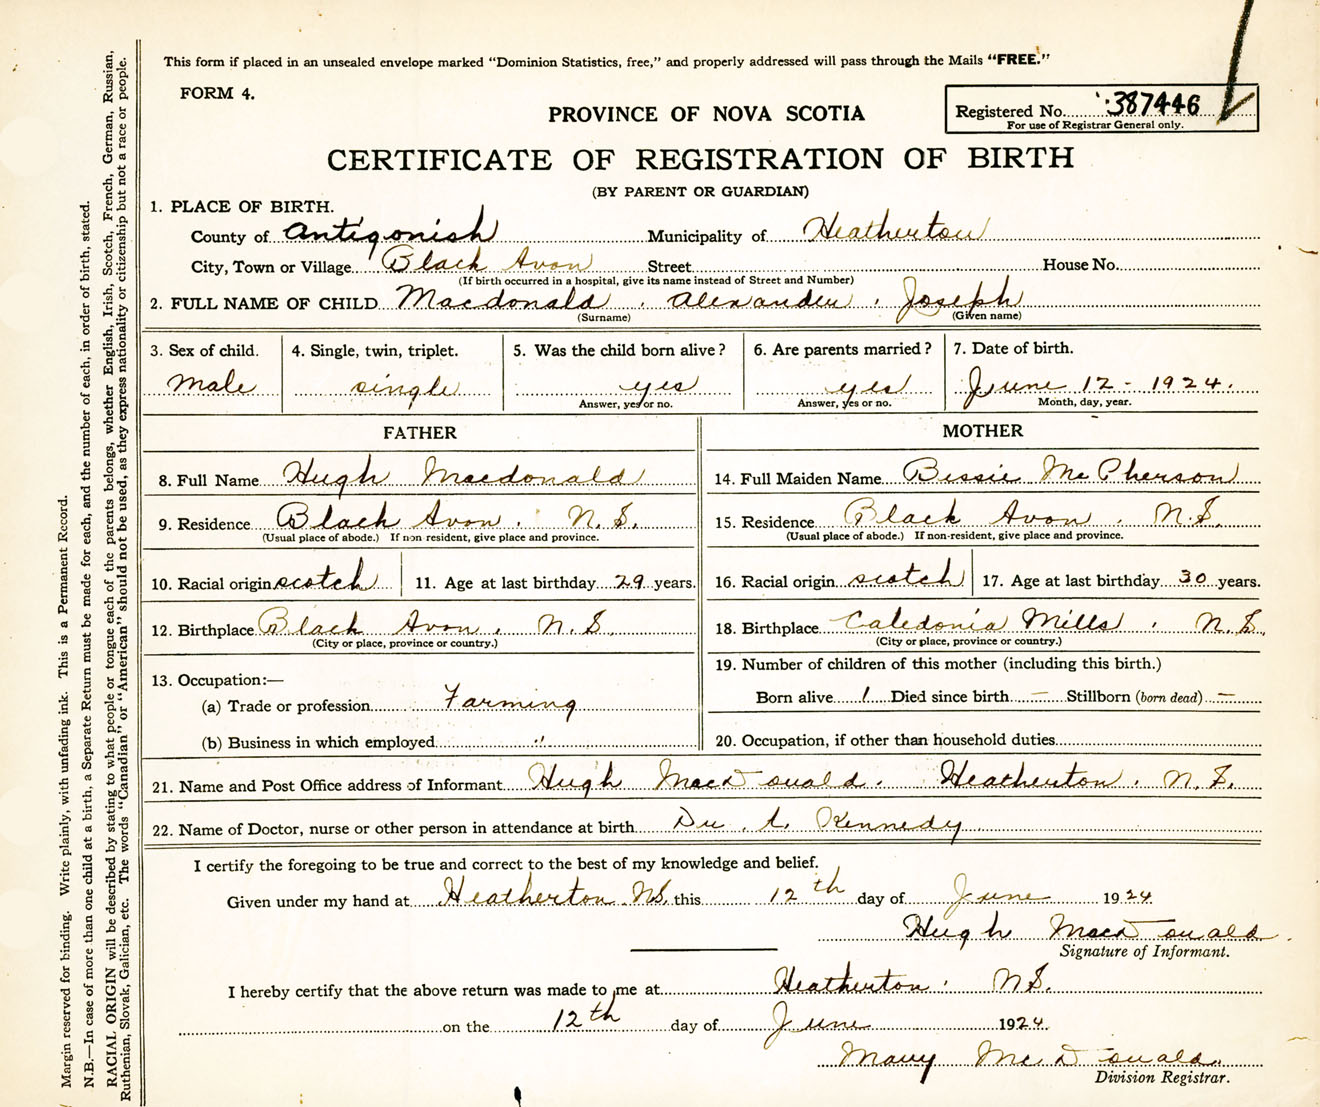 This form if placed in an unsealed envelope marked "Dominion Statistics, free," and properly addressed will pass through the Mails "FREE."
FORM 4.
PROVINCE OF NOVA SCOTIA
Registered No. 387446
For use of Registrar General only.
CERTIFICATE OF REGISTRATION OF BIRTH
(BY PARENT OR GUARDIAN)
1. PLACE OF BIRTH.
County of Antigonish Municipality of Heatherton
City, Town or Village Black Avon Street House No.
(If birth occurred in a hospital, give its name instead of Street and Number)
2. FULL NAME OF CHILD Macdonald . Alexander . Joseph
(Surname) (Given name)
3. Sex of child. 4. Single, twin, triplet. 5. Was the child born alive? 6. Are parents married? 7. Date of birth.
male single yes yes June 12 - 1924.
Answer, yes or no. Answer, yes or no. Month, day, year.
FATHER
8. Full Name Hugh Macdonald
9. Residence Black Avon . N.S.
(Usual place of abode.) If non-resident, give place and province.
10. Racial origin scotch 11. Age at last birthday 29 years.
12. Birthplace Black Avon . N.S.
(City or place, province or country.)
13. Occupation:—
(a) Trade or profession Farming
(b) Business in which employed "
MOTHER
14. Full Maiden Name Bessie McPherson
15. Residence Black Avon . N.S.
(Usual place of abode.) If non-resident, give place and province.
16. Racial origin scotch 17. Age at last birthday 30 years.
18. Birthplace Caledonia Mills . N.S.
(City or place, province or country.)
19. Number of children of this mother (including this birth.)
Born alive 1 Died since birth — Stillborn (born dead) —
20. Occupation, if other than household duties
21. Name and Post Office address of Informant Hugh MacDonald . Heatherton . N.S.
22. Name of Doctor, nurse or other person in attendance at birth Dr. A. Kennedy
I certify the foregoing to be true and correct to the best of my knowledge and belief.
Given under my hand at Heatherton N.S. this 12th day of June 1924
Hugh MacDonald.
Signature of Informant.
I hereby certify that the above return was made to me at Heatherton . N.S.
on the 12th day of June 1924.
Mary McDonald.
Division Registrar.
Margin reserved for binding. Write plainly, with unfading ink. This is a Permanent Record.
N.B.—In case of more than one child at a birth, a Separate Return must be made for each, and the number of each, in order of birth, stated.
RACIAL ORIGIN will be described by stating to what people or tongue each of the parents belongs, whether English, Irish, Scotch, French, German, Russian,
Ruthenian, Slovak, Galician, etc. The words "Canadian" or "American" should not be used, as they express nationality or citizenship but not a race or people.